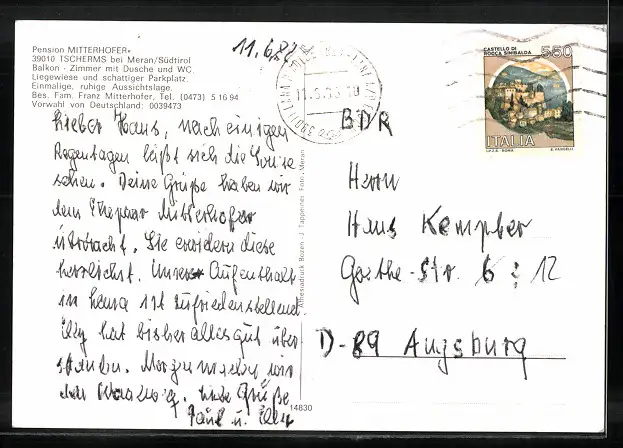 Pension MITTERHOFER*
39010 TSCHERMS bei Meran/Südtirol
Balkon - Zimmer mit Dusche und WC
Liegewiese und schattiger Parkplatz.
Einmalige, ruhige Aussichtslage.
Bes. Fam. Franz Mitterhofer, Tel. (0473) 5 16 94
Vorwahl von Deutschland: 0039473
Lieber Hans, nach einigen
Regentagen läßt sich die Sonne
sehen. Deine Grüße haben wir
dem Ehepaar Mitterhofer
Sie erwidern diese
herzlichst. Unser Aufenthalt
in ist zufriedenstellend.
Elly hat bisher alles gut über-
standen. Morgen wir
den Liebe Grüße
Paul u. Elly
14830
Athesiadruck Bozen / J. Tappeiner Foto, Meran
CASTELLO DI
ROCCA SINIBALDA
550
ITALIA
I.P.Z.S. ROMA
BDR
Herrn
Hans Kempter
Goethe-Str. 6 : 12
D-89 Augsburg